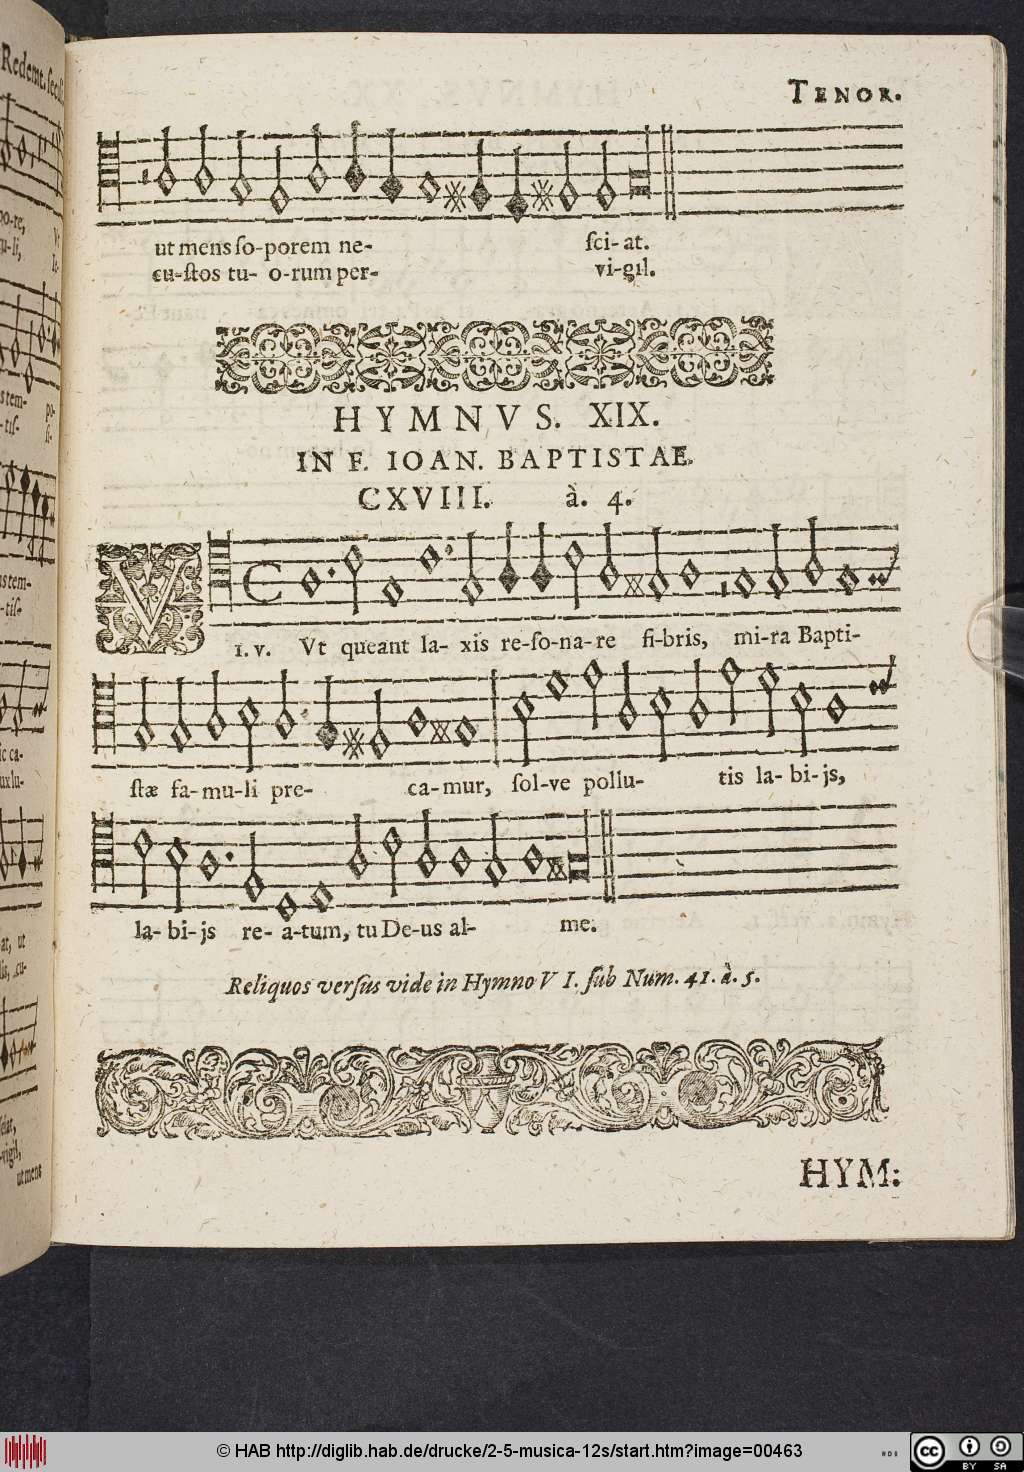 Redemt.
TENOR.
ut mens ſo-porem ne- ſci-at.
cu-ſtos tu- o-rum per- vi-gil.
HYMNVS. XIX.
IN F. IOAN. BAPTISTAE.
CXVIII. à. 4.
V
1. v. Vt queant la- xis re-ſo-na-re fi-bris, mi-ra Bapti-
ſtæ fa-mu-li pre- ca-mur, ſol-ve pollu- tis la-bi-js,
la-bi-js re- a-tum, tu De-us al- me.
Reliquos verſus vide in Hymno V I. ſub Num. 41. à. 5.
HYM:
© HAB http://diglib.hab.de/drucke/2-5-musica-12s/start.htm?image=00463
cc BY SA